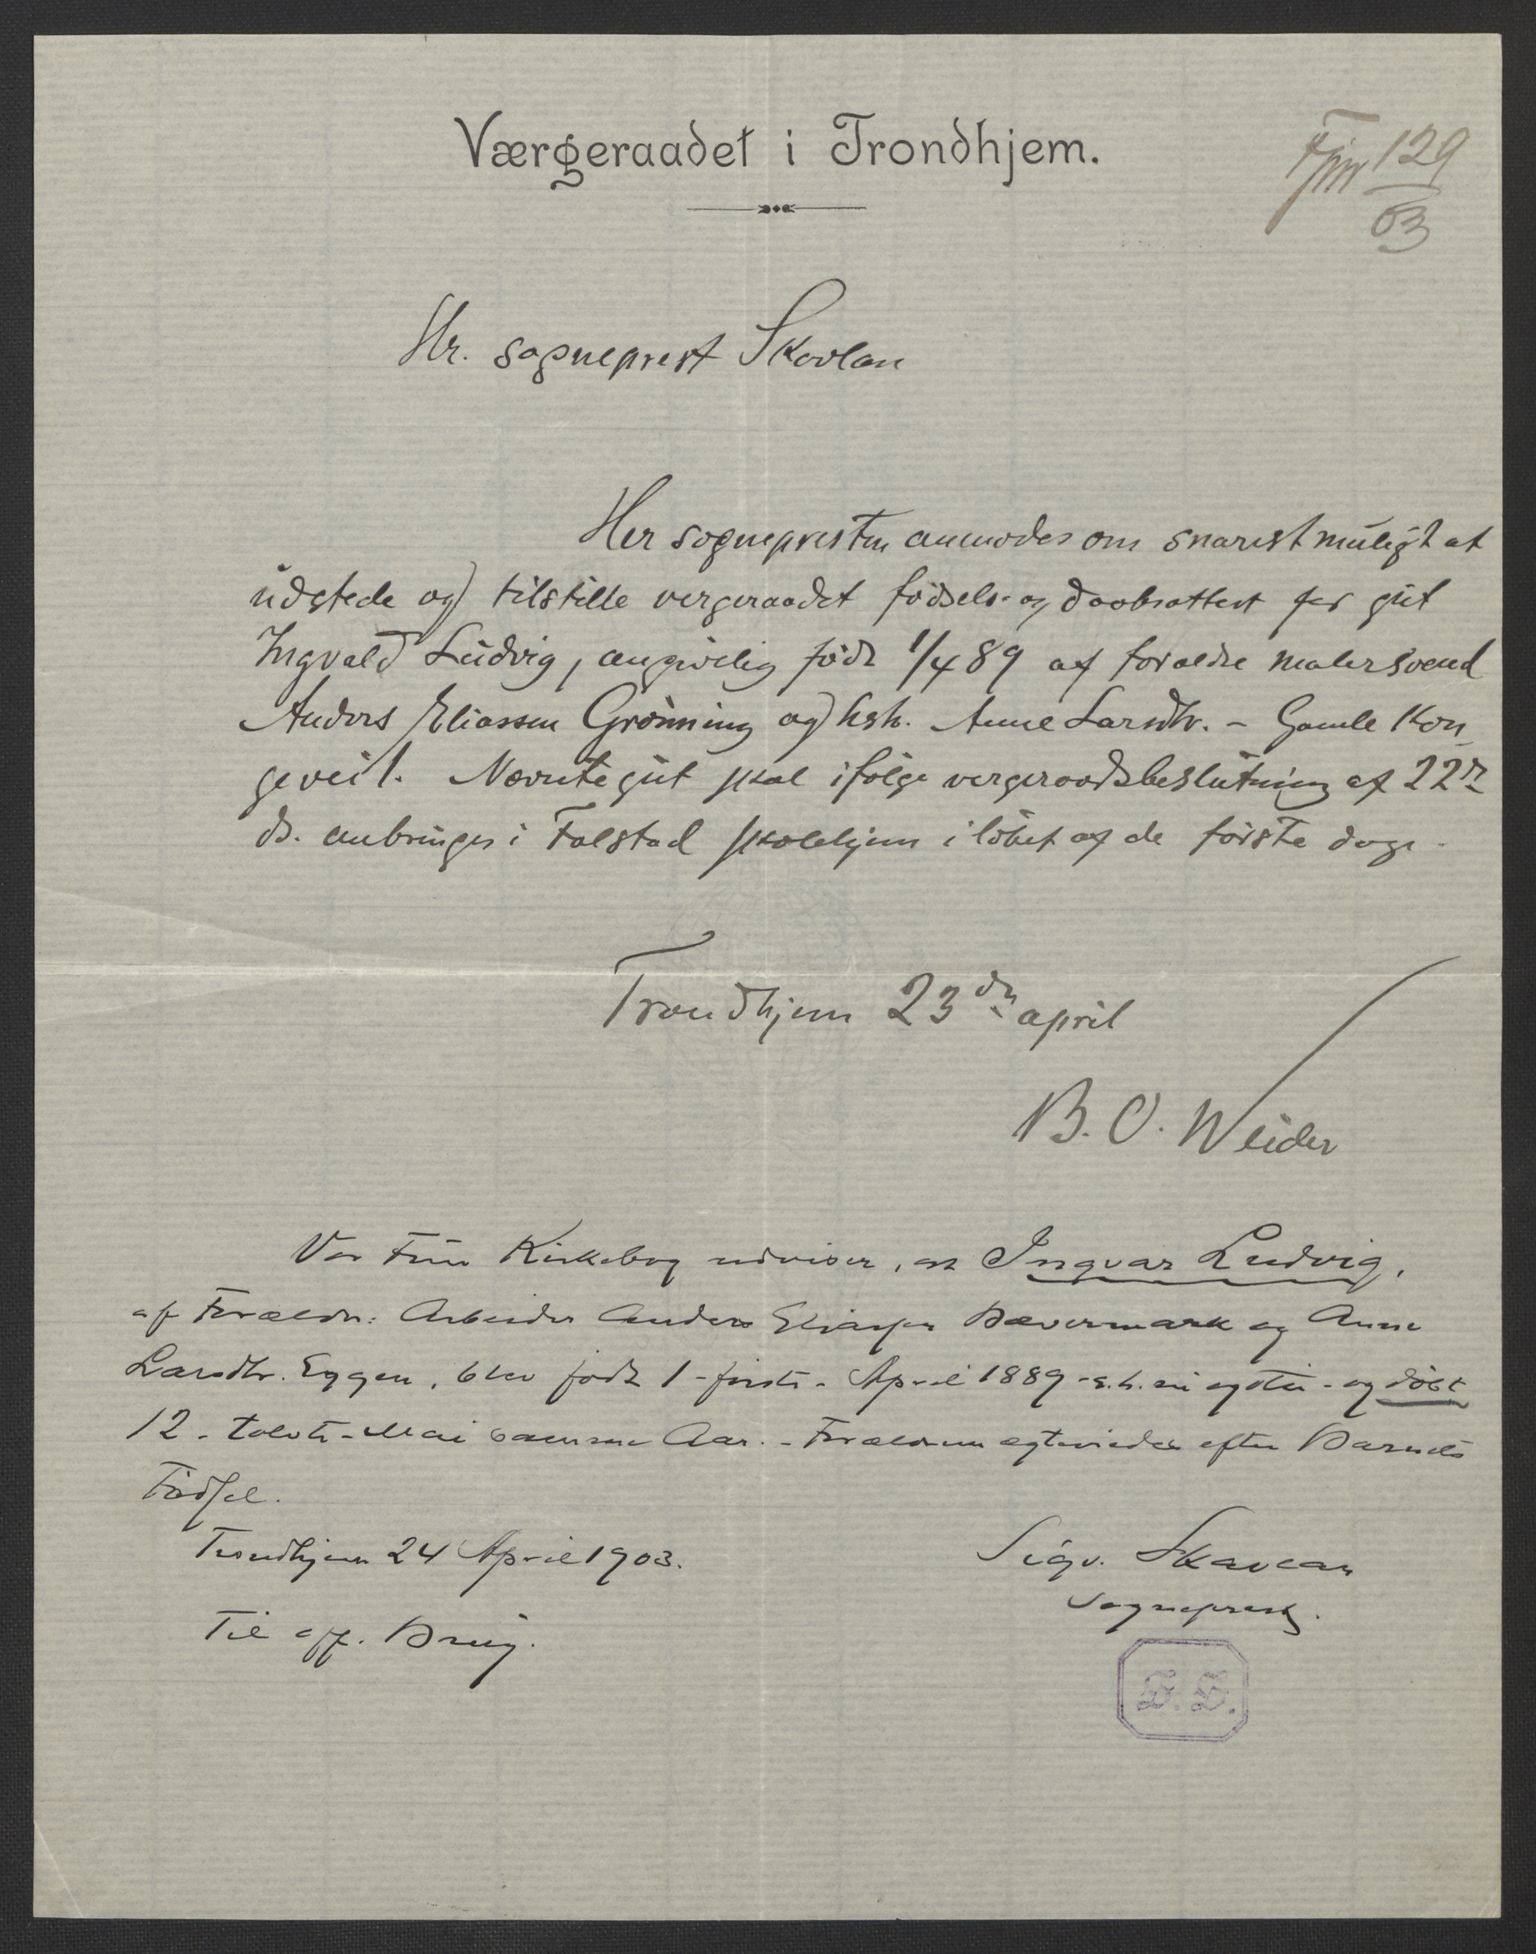 Værgeraadet i Trondhjem.
129
03
Hr. sogneprest Skavlan
Hr. sognepresten anmodes om snarest muligt at
udstede og tilstille vergeraadet fødsels- og daabsattest for gut
Ingvald Ludvig, angivelig født 1/4 89 af forældre malersvend
Anders Eliassen Grønning og hsh. Anne Larsdtr. – Gamle Kon-
gevei 1. Nævnte gut skal ifølge vergeraadsbeslutning af 22de
ds. anbringes i Falstad skolehjem i løbet af de første dage.
Trondhjem 23de april
B. O. Weider
Vor Frue Kirkebog udviser, at Ingvar Ludvig,
af Forældre: Arbeider Anders Eliassen Bævermark og Anne
Larsdtr. Eggen, blev født 1 - første - April 1889 - e.h. ni og otti - og døbt
12 - tolvte - Mai samme Aar. - Forældrene egteviedes efter Barnets
Fødsel.
Trondhjem 24 April 1903.
Sigv. Skavlan
Sogneprest.
Til off. Brug.